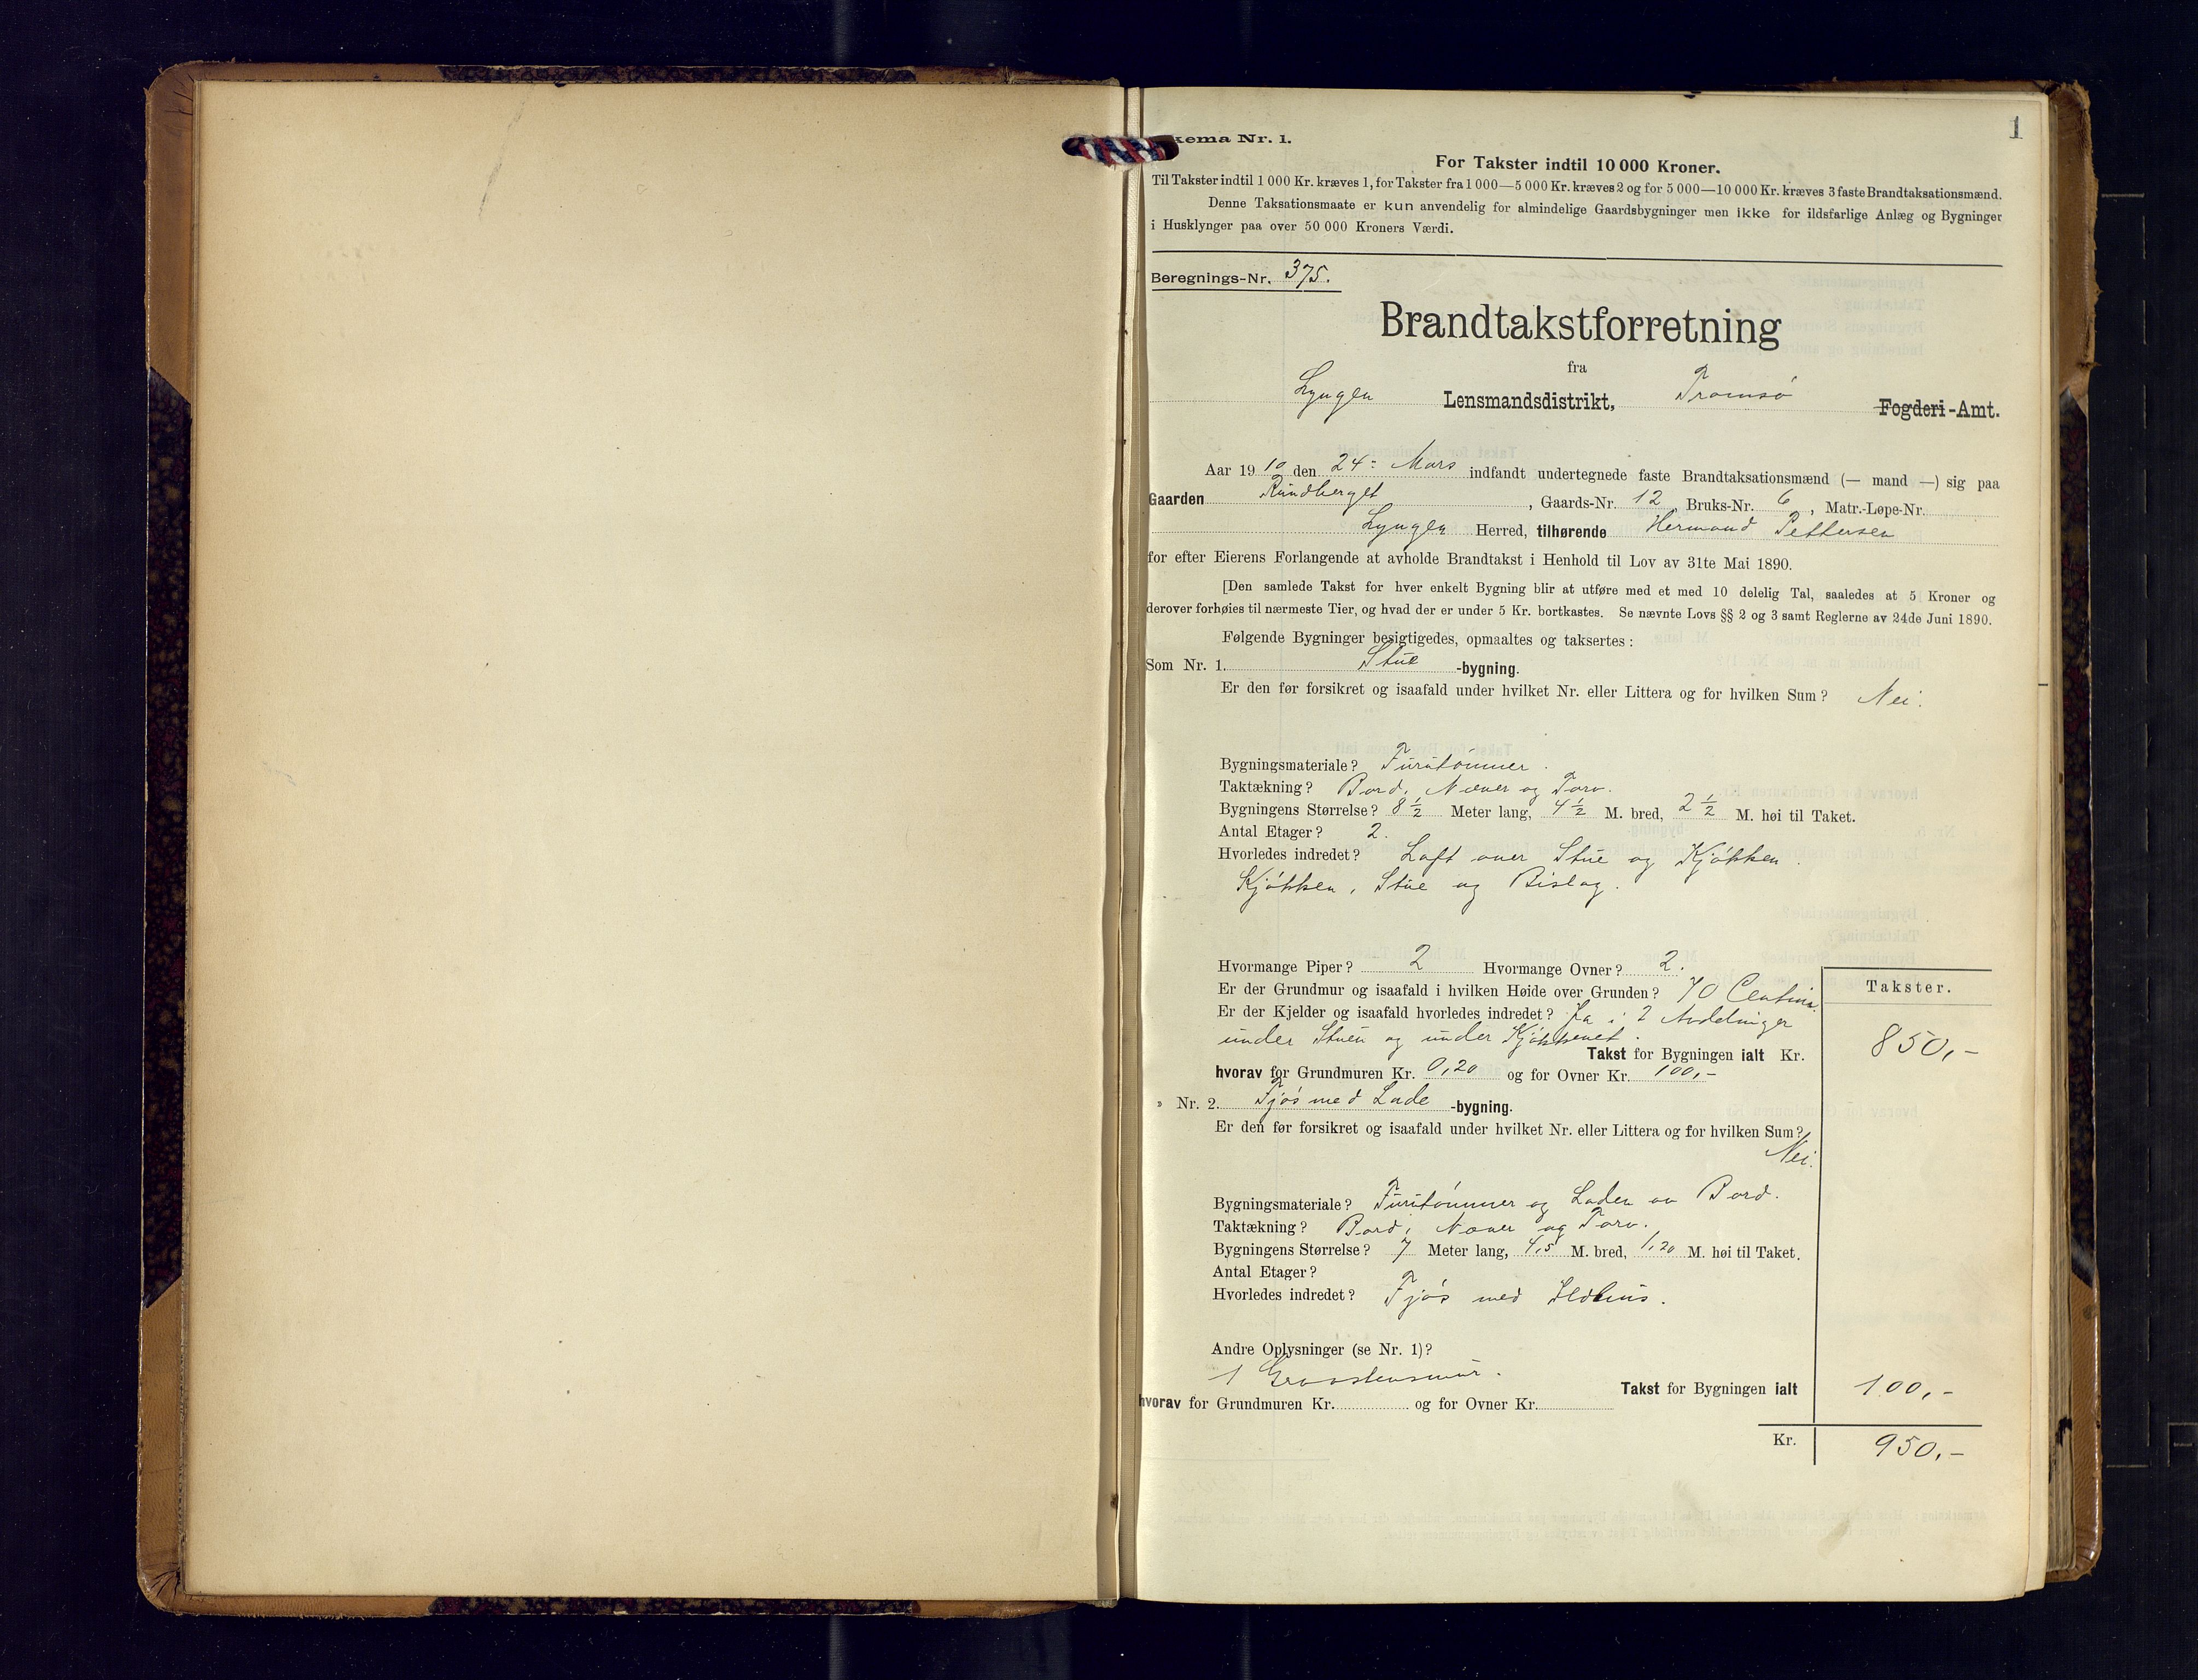 1
kema Nr. 1.
For Takster indtil 10 000 Kroner.
Til Takster indtil 1 000 Kr. kræves 1, for Takster fra 1 000—5 000 Kr. kræves 2 og for 5 000—10 000 Kr. kræves 3 faste Brandtaksationsmænd.
Denne Taksationsmaate er kun anvendelig for almindelige Gaardsbygninger men ikke for ildsfarlige Anlæg og Bygninger
i Husklynger paa over 50 000 Kroners Værdi.
Beregnings-Nr. 375.
Brandtakstforretning
fra
Lyngen Lensmandsdistrikt, Tromsö Fogderi-Amt.
Aar 1910 den 24: Mars indfandt undertegnede faste Brandtaksationsmænd (— mand —) sig paa
Gaarden Rundberget, Gaards-Nr. 12, Bruks-Nr. 6, Matr.-Løpe-Nr.
Lyngen Herred, tilhørende Hermand Pettersen
for efter Eierens Forlangende at avholde Brandtakst i Henhold til Lov av 31te Mai 1890.
[Den samlede Takst for hver enkelt Bygning blir at utføre med et med 10 delelig Tal, saaledes at 5 Kroner og
derover forhøies til nærmeste Tier, og hvad der er under 5 Kr. bortkastes. Se nævnte Lovs §§ 2 og 3 samt Reglerne av 24de Juni 1890.
Følgende Bygninger besigtigedes, opmaaltes og taksertes:
Som Nr. 1. Stue -bygning.
Er den før forsikret og isaafald under hvilket Nr. eller Littera og for hvilken Sum? Nei.
Bygningsmateriale? Furutömmer.
Taktækning? Bord, Næver og Torv.
Bygningens Størrelse? 8 1/2 Meter lang, 4 1/2 M. bred, 2 1/2 M. høi til Taket.
Antal Etager? 2.
Hvorledes indredet? Loft over Stue og Kjökken.
Kjökken, Stue og Bislag.
Hvormange Piper? 2 Hvormange Ovner? 2.
Er der Grundmur og isaafald i hvilken Høide over Grunden? 70 Centim.
Er der Kjelder og isaafald hvorledes indredet? Ja i 2 Avdelinger
under Stuen og under Kjökkenet.
Takster.
Takst for Bygningen ialt Kr. 850,-
hvorav for Grundmuren Kr. 0,20 og for Ovner Kr. 100,-
» Nr. 2. Fjös med Lade -bygning.
Er den før forsikret og isaafald under hvilket Nr. eller Littera og for hvilken Sum?
Nei.
Bygningsmateriale? Furutömmer og Laden av Bord.
Taktækning? Bord, Næver og Torv.
Bygningens Størrelse? 7 Meter lang, 4,5 M. bred, 1,20 M. høi til Taket.
Antal Etager?
Hvorledes indredet? Fjös med Ildhus.
Andre Oplysninger (se Nr. 1)?
1 Graastensmur.
Takst for Bygningen ialt 100,-
hvorav for Grundmuren Kr. og for Ovner Kr.
Kr. 950,-